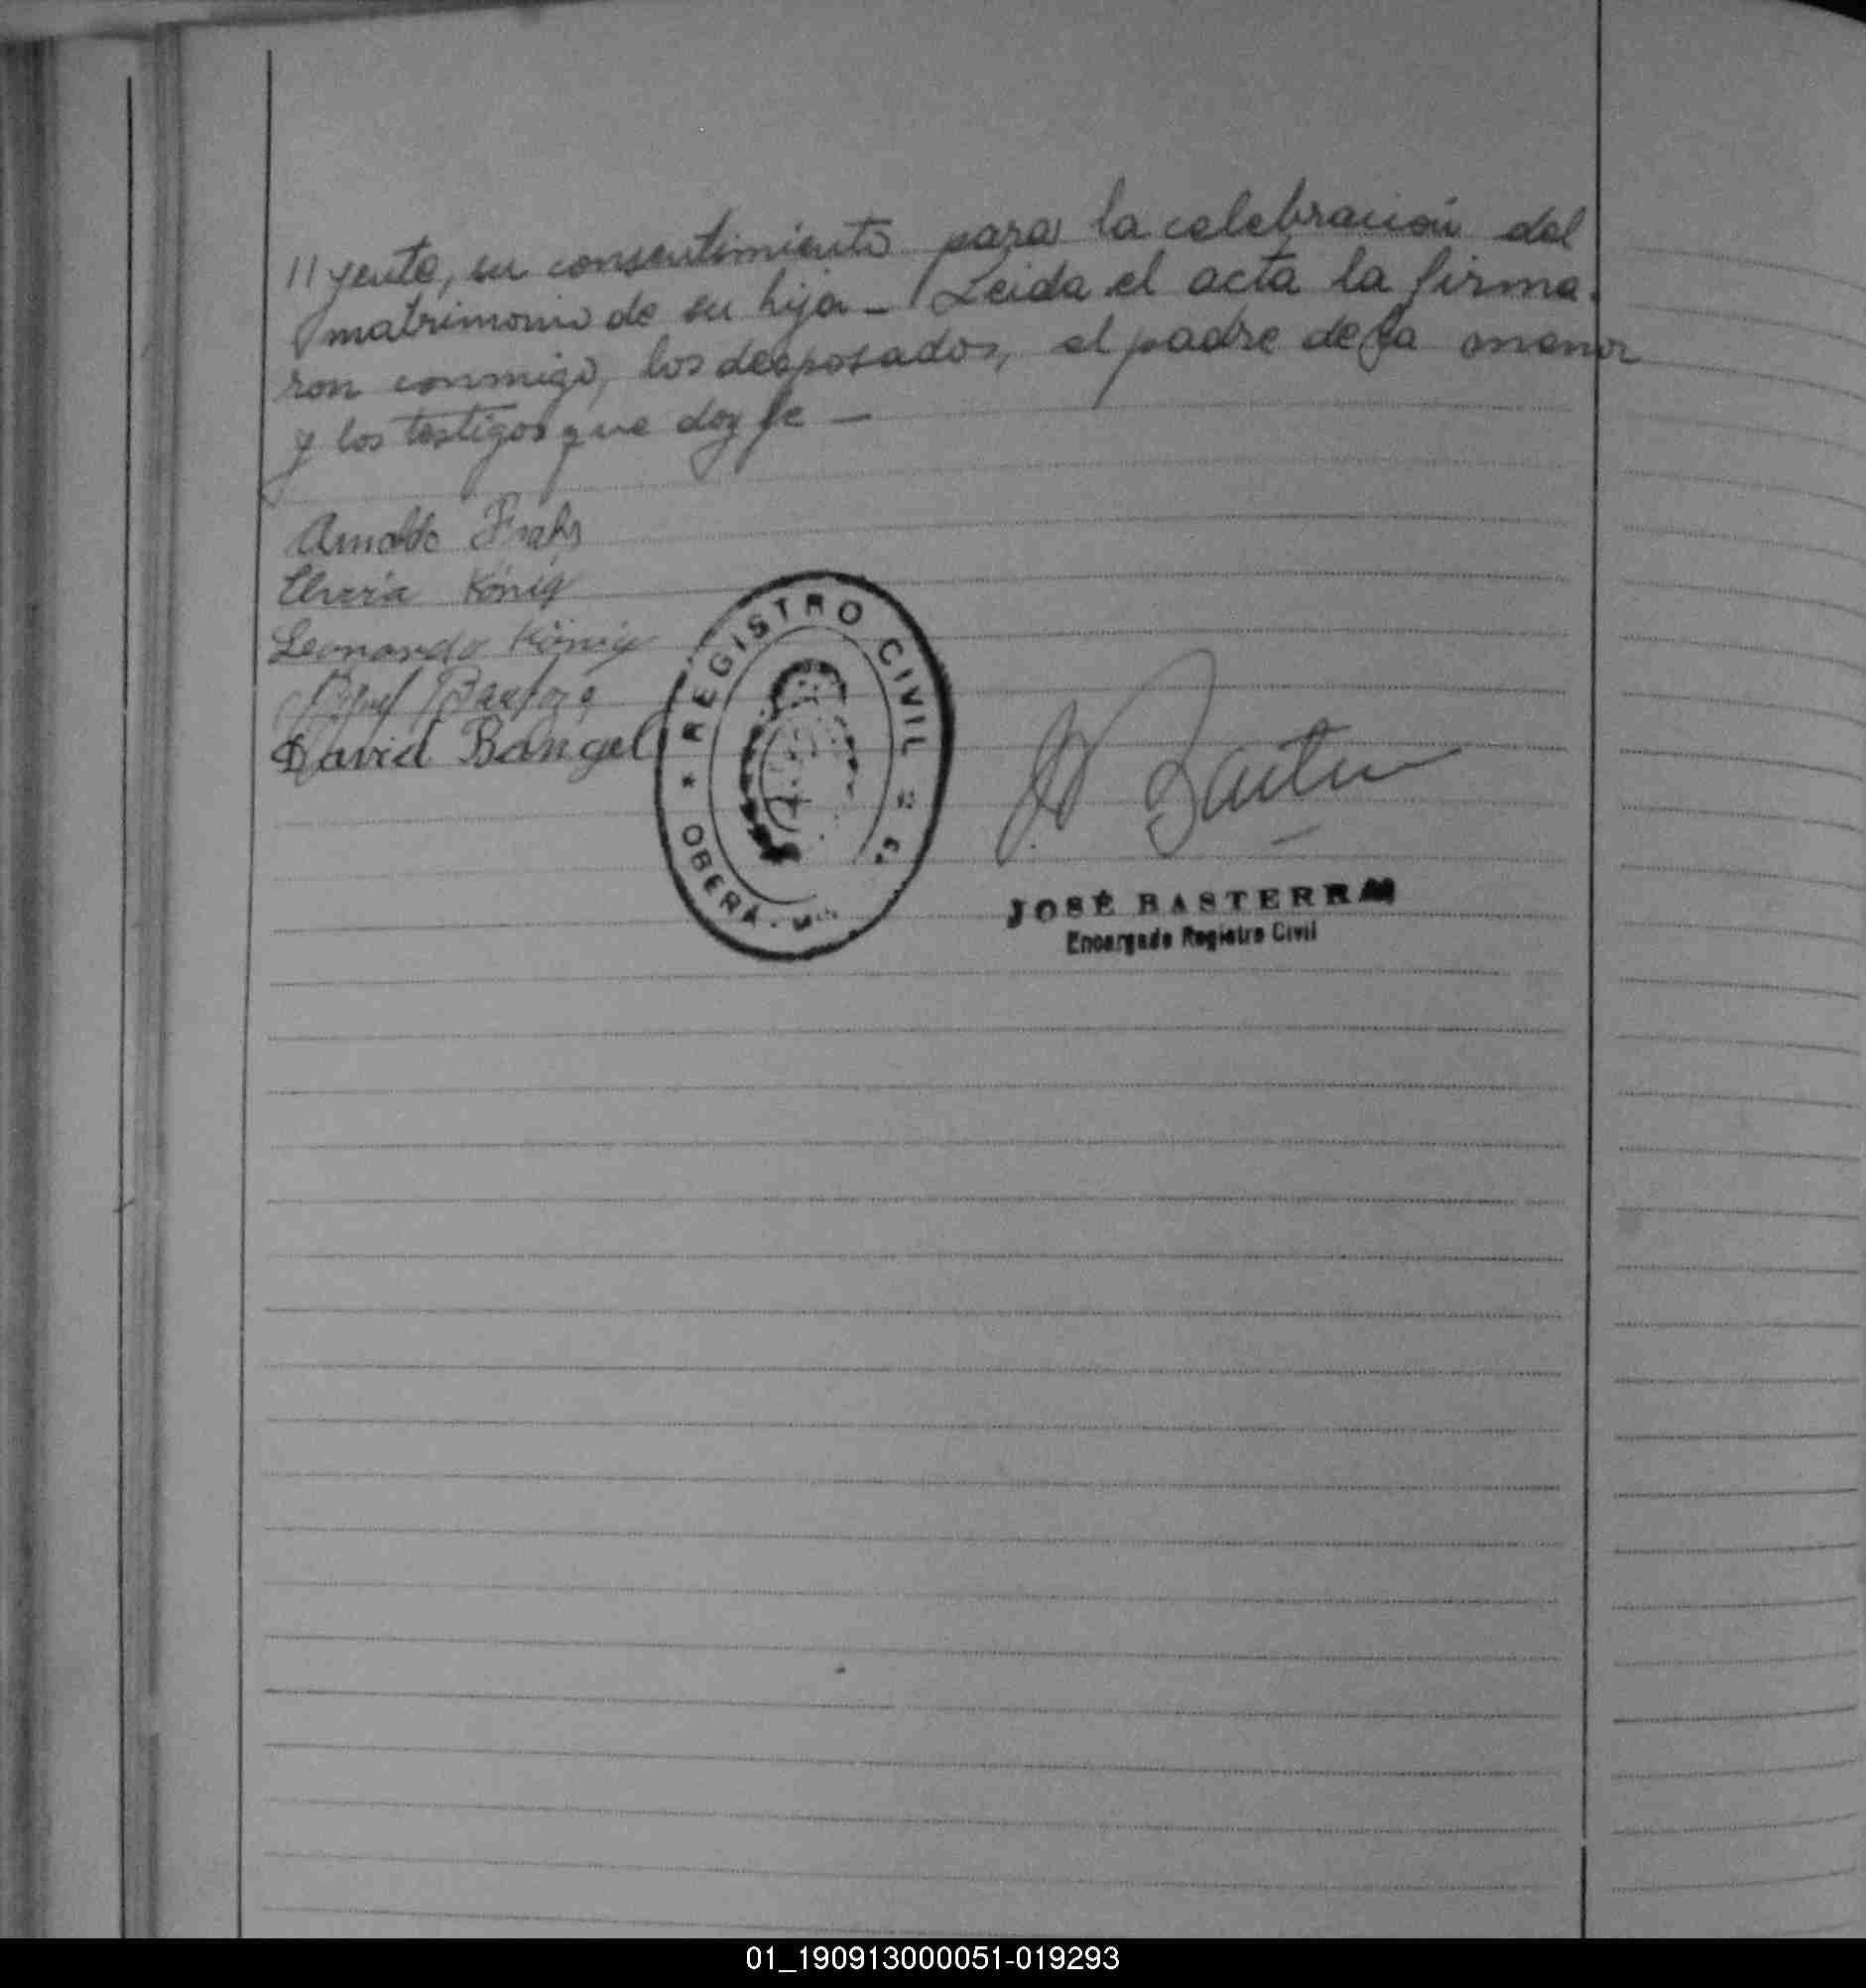 // yente, su consentimiento para la celebración del
matrimonio de su hija - Leida el acta la firma-
ron conmigo, los desposados, el padre de la menor
y los testigos que doy fe —
Arnoldo
König
Leonardo König
David Bangel
REGISTRO CIVIL
OBERÁ
JOSÉ BASTERRA
Encargado Registro Civil
01_190913000051-019293